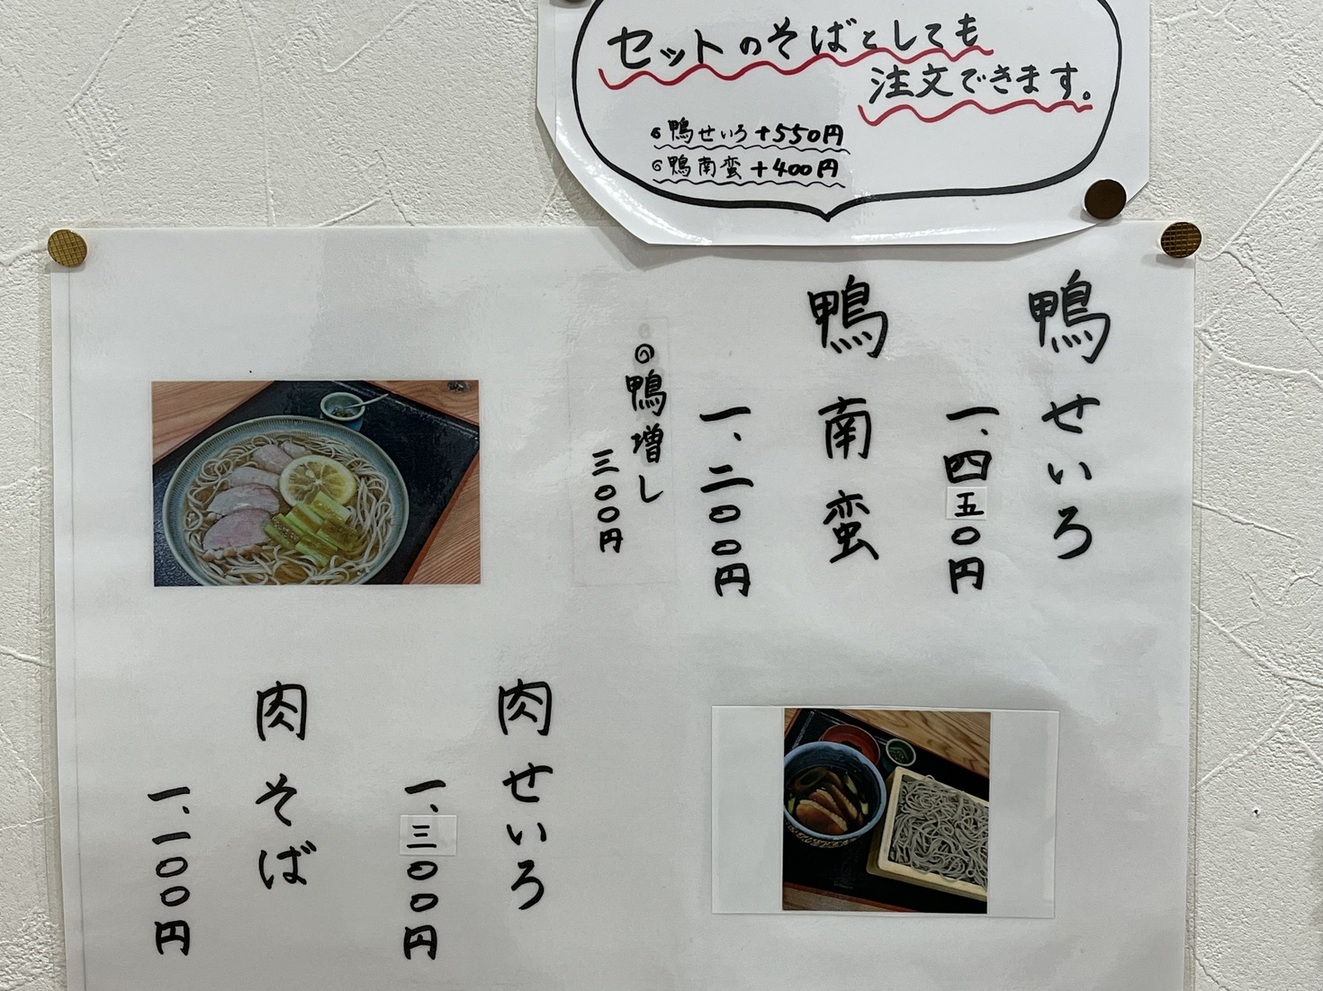 セットのそばとしても
注文できます。
鴨せいろ+550円
鴨南蛮+400円
鴨せいろ
一、四五〇円
鴨南蛮
一、二〇〇円
鴨増し
三〇〇円
肉せいろ
一、三〇〇円
肉そば
一、一〇〇円